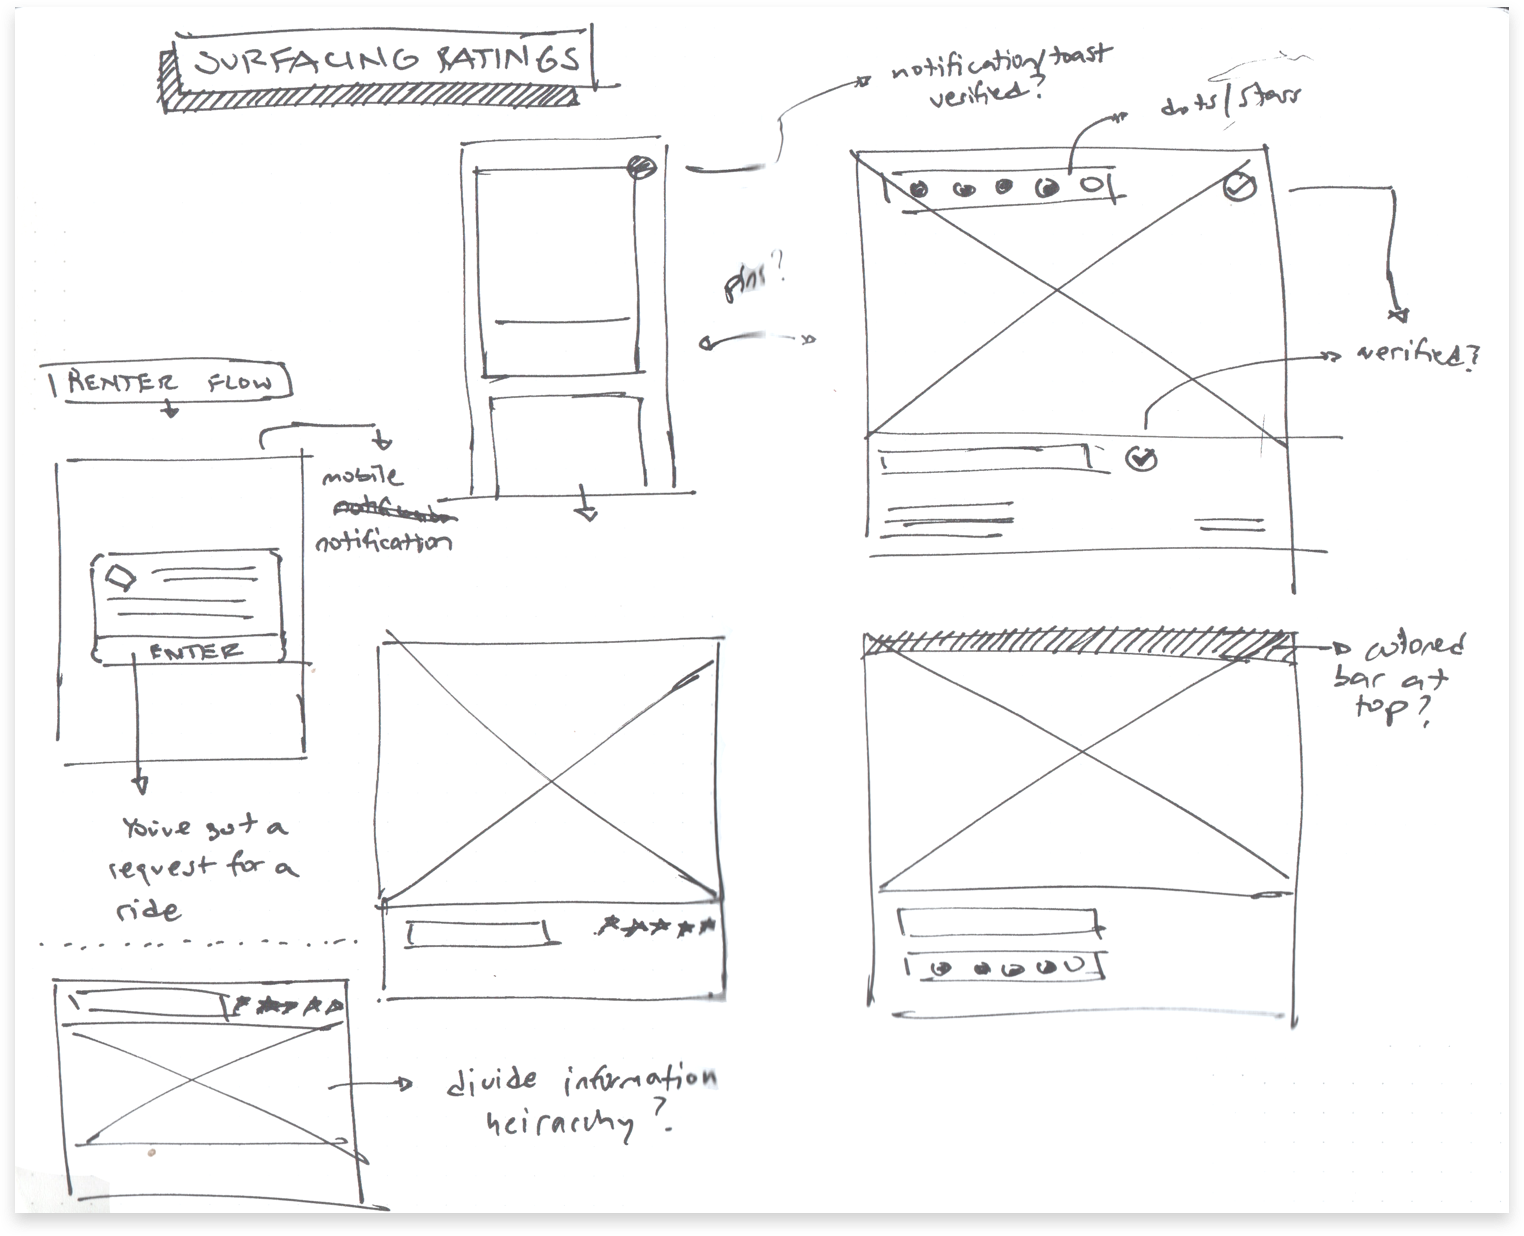 SURFACING RATINGS
notification/toast
verified?
dots/stars
verified?
RENTER FLOW
mobile
notification
ENTER
You've got a
request for a
ride
colored
bar at
top?
divide information
heirarchy?